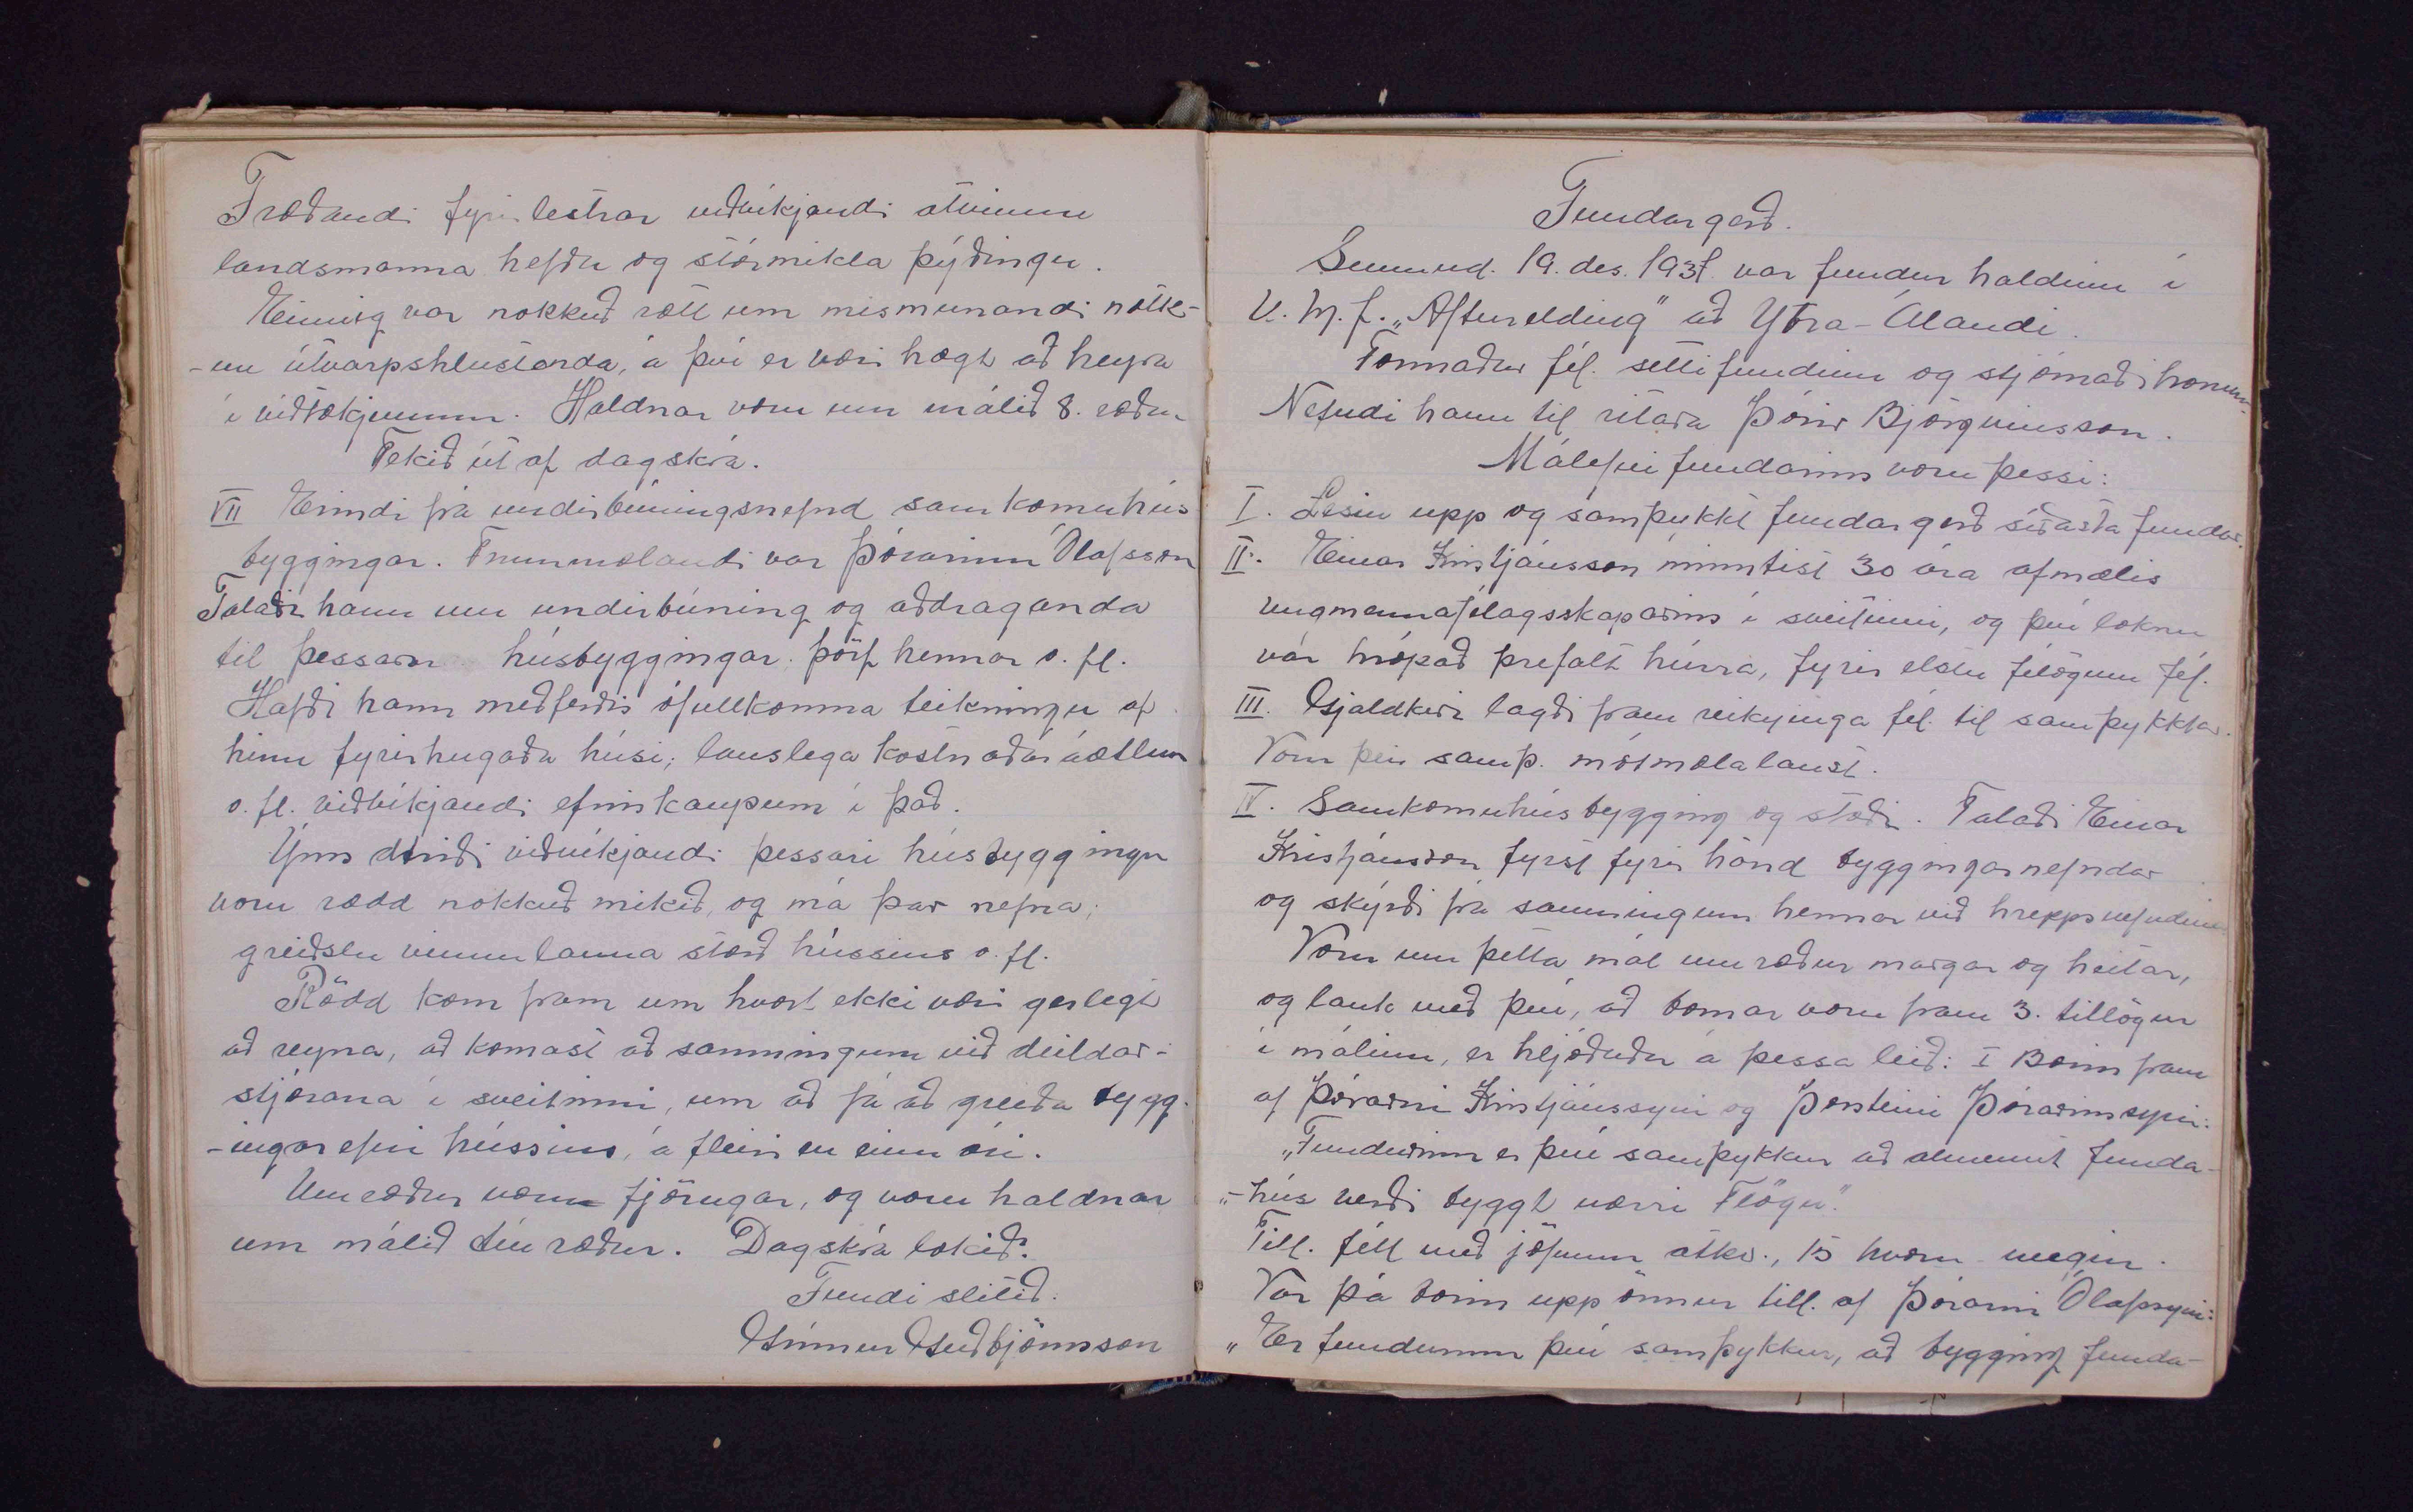 Fræðandi fyrirlestrar viðvíkjandi atvinnu
landsmanna hefðu og stórmikla þýðingu.
Einnig var nokkuð rætt um mismunandi nótk-
-un útvarpshlustenda, á því er væri hægt að heyra
í viðtækjunum. Haldnar voru um málið 8. ræður
Tekið út af dagskrá.
VII Erindi frá undirbúningsnefnd samkomuhús
byggingar. Frummælandi var Þórarinn Ólafsson
Talaði hann um undirbúning og aðdraganda
til þessarar húsbyggingar, þörf hennar o. fl.
Hafði hann meðferðis ófullkomna teikningu af
hinu fyrirhugaða húsi; lauslega kostnaðaráætlun
o. fl. viðvíkjandi efniskaupum í það.
Ýms atriði viðvíkjandi þessari húsbyggingu
voru rædd nokkuð mikið, og má þar nefna;
greiðslu vinnulauna stærð hússins o. fl.
Rödd kom fram um hvort ekki væri gerlegt
að reyna, að komast að samningum við deildar-
stjórana í sveitinni, um að fá að greiða bygg-
-ingarefni hússins, á fleiri en einu ári.
Umræður voru fjörugar, og voru haldnar
um málið tíu ræður. Dagskrá lokið.
Fundi slitið.
Grímur Guðbjörnsson
Fundargerð.
Sunnud. 19. des. 1937 var fundur haldinn í
U. M. f. „Afturelding" að Ytra-Álandi.
Formaður fél. setti fundinn og stjórnaði honum.
Nefndi hann til ritara Þórir Björgvinsson.
Málefni fundarins voru þessi:
I. Lesin upp og samþykkt fundargerð síðasta fundar.
II. Einar Kristjánsson minntist 30 ára afmælis
ungmennafélagsskaparins í sveitinni, og því loknu
var hrópað þrefalt húrra, fyrir elstu félögum fél.
III. Gjaldkeri lagði fram reikninga fél. til samþykktar.
Voru þeir samþ. mótmælalaust.
IV. Samkomuhúsbygging og stæði. Talaði Einar
Kristjánsson fyrst fyrir hönd byggingarnefndar
og skýrði frá samningum hennar við hreppsnefndina.
Voru um þetta mál umræður margar og heitar,
og lauk með því, að bornar voru fram 3. tillögur
í málinu, er hljóðuðu á þessa leið: I Borin fram
af Þórarni Kristjánssyni og Þorsteini Þórarinssyni:
„Fundurinn er því samþykkur að almennt funda-
„-hús verði byggt nærri Flögu."
Till. féll með jöfnum atkv., 15 hvoru megin.
Var þá borin upp önnur till. af Þórarni Ólafssyni:
„Er fundurinn því samþykkur, að bygging funda-